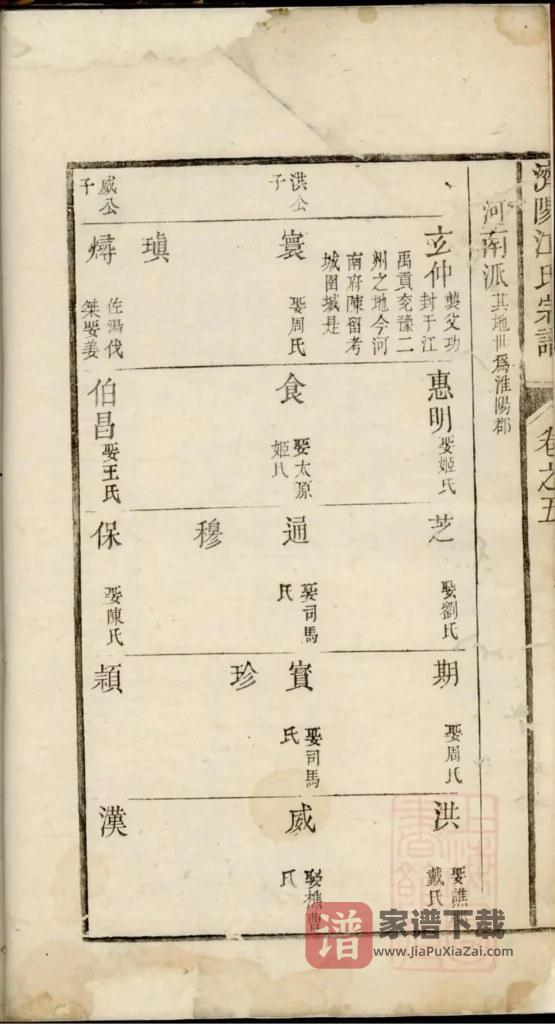 濟陽江氏宗譜 卷之五
河南派 其地世爲淮陽郡
玄仲 襲父功封于江禹貢兗豫二州之地今河南府陳留考城圉城是
惠明 娶姬氏
芝 娶劉氏
期 娶周氏
洪 娶譙 戴氏
洪公子
寰 娶周氏
食 娶太原姬氏
通 娶司馬氏
穆
實 娶司馬氏
珍
威 娶樵曹氏
威公子
瑱
燖 佐湯伐桀娶姜
伯昌 娶王氏
保 娶陳氏
穎
漢
谱 家谱下载
www.JiaPuXiaZai.com